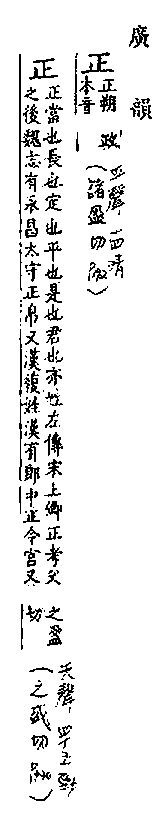 廣韻
正 正朔本音政 平聲 十四清(諸盈切)
正 正當也長也定也平也是也君也亦姓左傳宋上卿正考父之後魏志有永昌太守正帛又漢複姓漢有郎中正令宮又之盈切 去聲 四十五勁(之盛切)